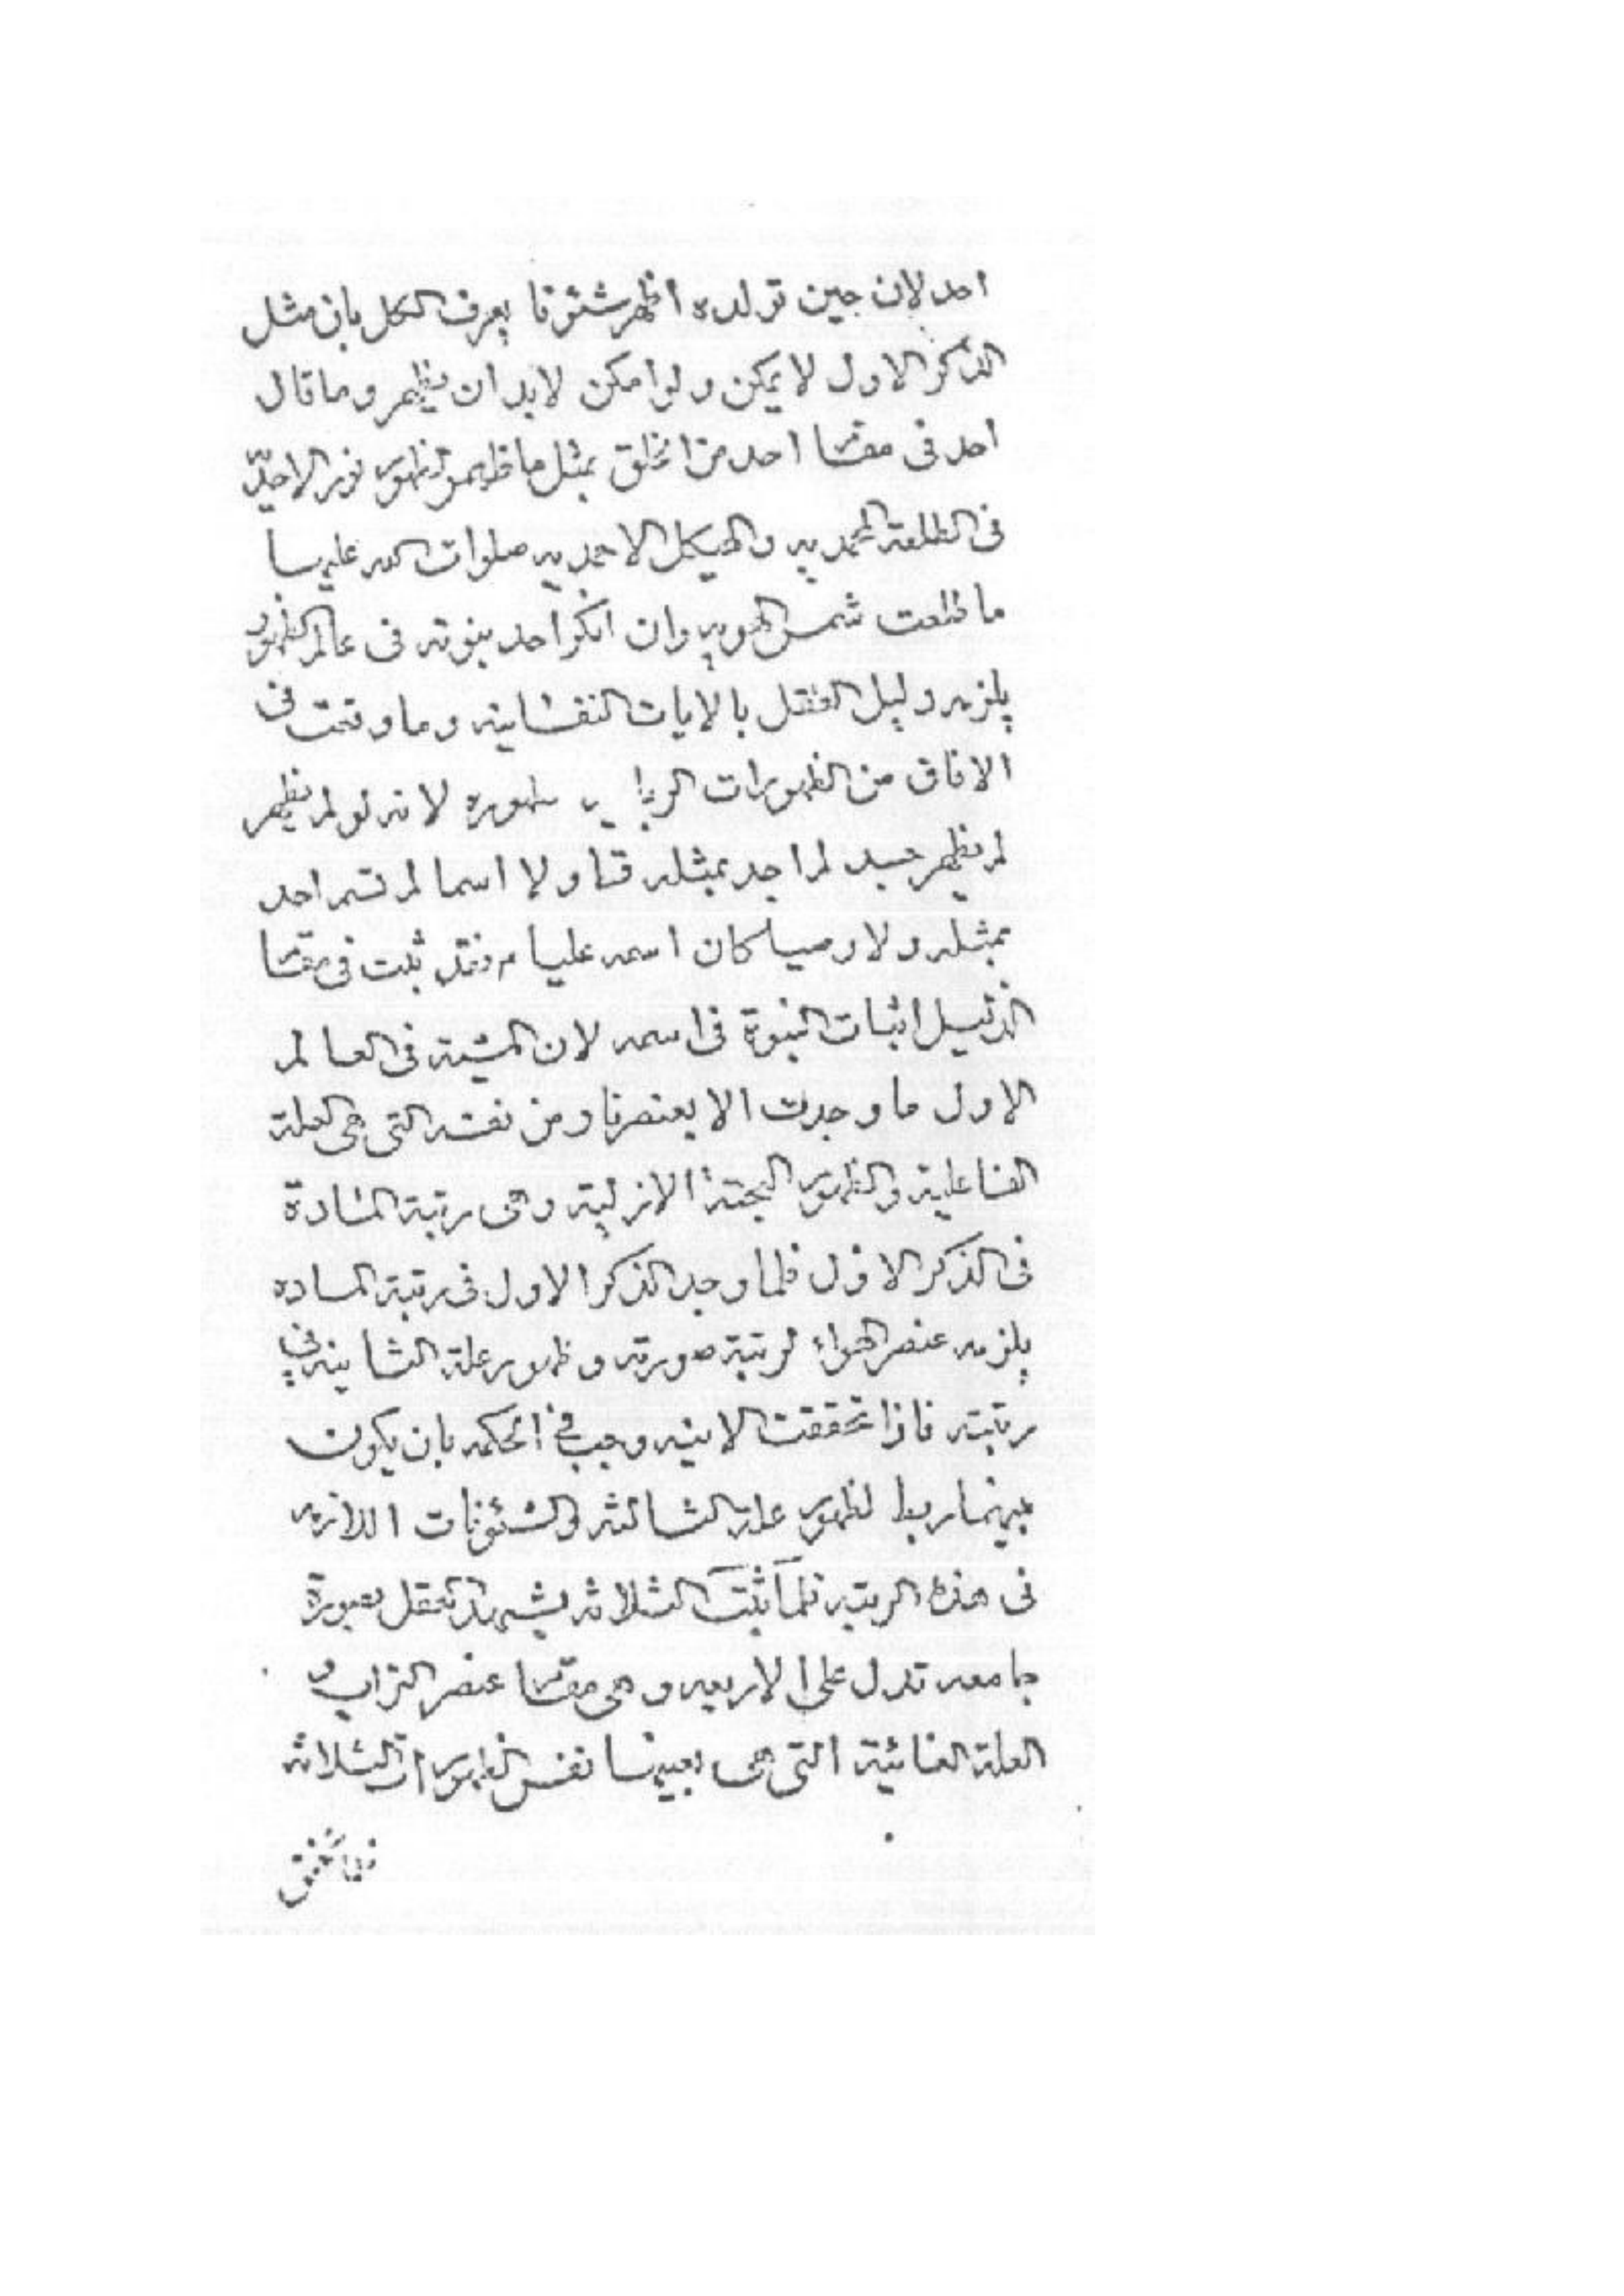 احد لان حين تولده اظهر شئونا يعرف الكل بان مثل
الذكر الاول لا يمكن ولو امكن لابد ان يظهر وما قال
احد فى مقام احد من الخلق بمثل ما ظهر ظهور نور الاحدية
فى الطلعة المحمديه والهيكل الاحمديه صلوات الله عليها
ما طلعت شمس الهويه وان انكر احد بنوته فى عالم الظهور
يلزمه دليل العقل بالايات النفسانيه وما وقعت فى
الافاق من الظهورات ظهوره لانه لو لم يظهر
لم يظهر جسد لم اجد بمثله قط ولا اسما لم تسم احد
بمثله ولا وصيا كان اسمه عليا م فقد ثبت فى مقام
الدليل اثبات النبوة فى اسمه لان المشيته فى العالم
الاول ما وجدت الا بعنصر نار من نفسه التى هى العلة
الفاعلية والظهور البحتة الازلية وهى رتبة المادة
فى الذكر الاول فلما وجد الذكر الاول فى رتبة الماده
يلزمه عنصر الهواء لرتبة صورته وظهور علة الثانيه فى
رتبته فاذا تحققت الاثنيه وجب فى الحكمه بان يكون
بينهما ربط لظهور علة الثالثه والشئونات اللازمه
فى هذه الرتبه فلما ثبت الثلاثه يشهد العقل بصورة
جامعه تدل على الاربعه وهى مقام عنصر التراب و
العلة الغائية التى هى بعينها نفس الظهورات الثلاثه